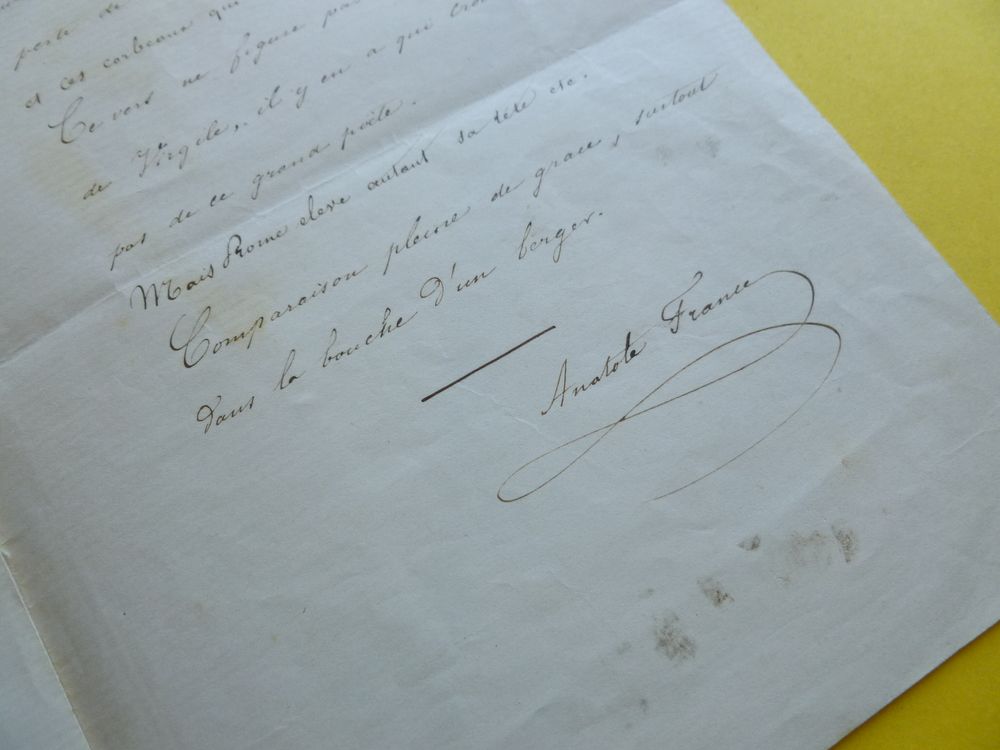 perte de
et ces corbeaux qui
Ce vers ne figure pas
de Virgile, il y en a qui
pas de ce grand poëte.
Mais Rome eleve autant sa tete etc.
Comparaison pleine de grace, surtout
dans la bouche d'un berger.
Anatole France